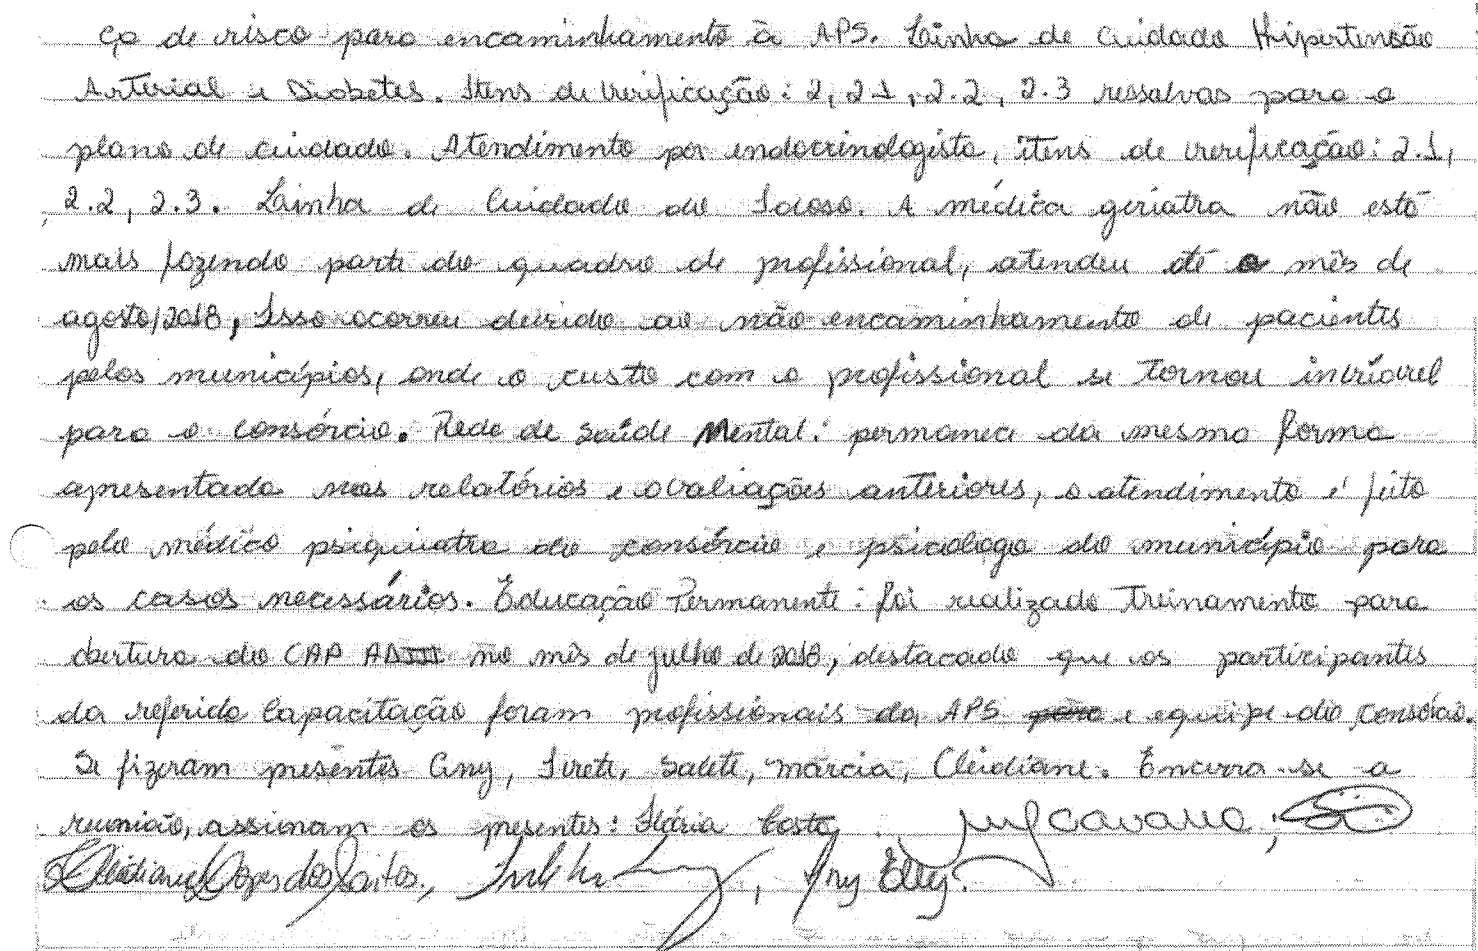 ça de risco para encaminhamento à APS. Linha de cuidado Hipertensão
Arterial e Diabetes. Itens de verificação: 2, 2.1, 2.2, 2.3 ressalvas para o
plano de cuidado. Atendimento por endocrinologista, itens de verificação: 2.1,
2.2, 2.3. Linha de Cuidado do Idoso. A médica geriatra não está
mais fazendo parte do quadro de profissional, atendeu até o mês de
agosto/2018, Isso ocorreu devido ao não encaminhamento de pacientes
pelos municípios, onde o custo com o profissional se tornou inviável
para o consórcio. Rede de Saúde Mental: permanece da mesma forma
apresentada nos relatórios e avaliações anteriores, o atendimento é feito
pelo médico psiquiatra do consórcio e psicologo do município para
os casos necessários. Educação Permanente: foi realizado Treinamento para
abertura do CAP AD III no mês de julho de 2018, destacado que os participantes
da referida Capacitação foram profissionais da APS e equipe do consórcio.
Se fizeram presentes Any, Ivete, Salete, márcia, Cleidiane. Encerra-se a
reunião, assinam os presentes: Costa, Cavalla;
Cleidiane Lopes dos Santos, Any Elly.